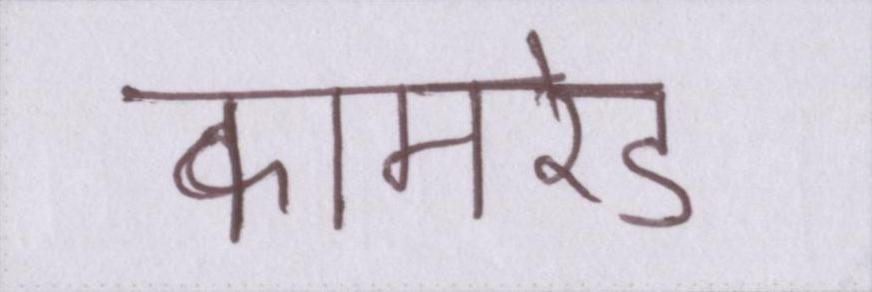 कामरेड